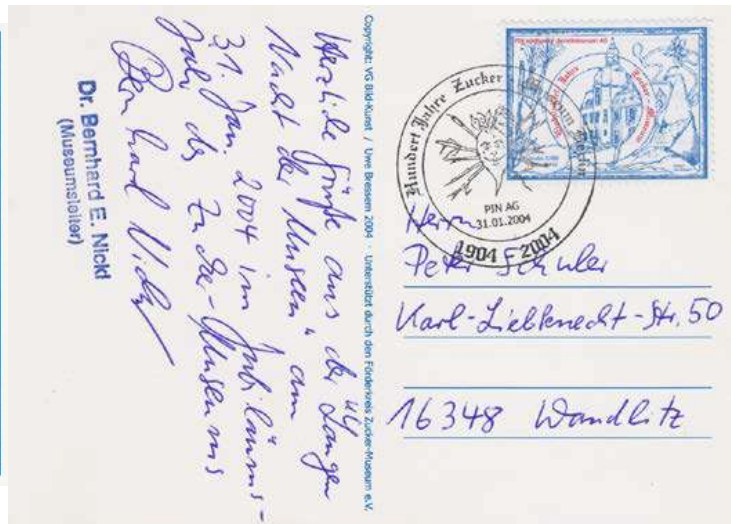 Herzliche Grüße aus der „Langen
Nacht der Museen" am
31. Jan. 2004 im Jubiläums-
jahr des Zucker-Museums
Bernhard Nickl
Dr. Bernhard E. Nickl
(Museumsleiter)
Copyright: VG Bild-Kunst / Uwe Bressem 2004 · Unterstützt durch den Förderkreis Zucker-Museum e.V.
Hundert Jahre Zucker Museum Berlin
PIN AG
31.01.2004
1904 2004
Hundert Jahre Zucker-Museum
Herrn
Peter Schuler
Karl-Liebknecht-Str. 50
16348 Wandlitz